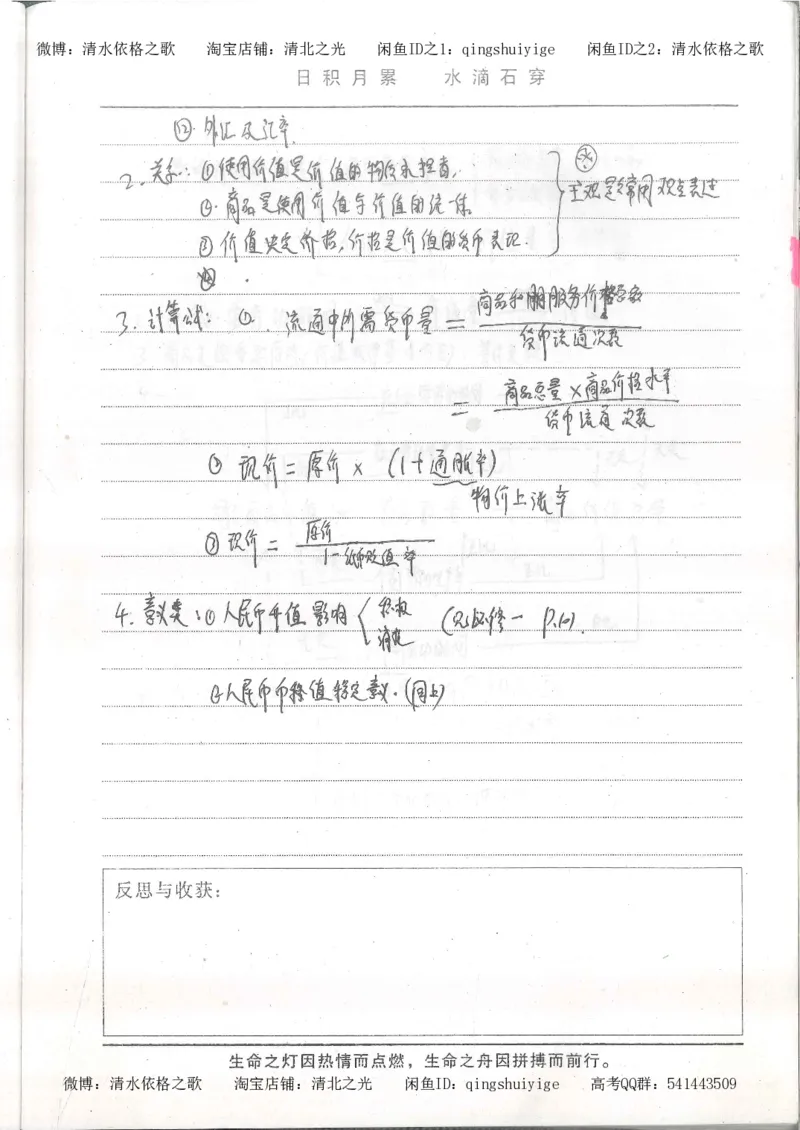 微博：清水依格之歌 淘宝店铺：清北之光 闲鱼ID之1：qingshuiyige 闲鱼ID之2：清水依格之歌
日积月累 水滴石穿
⑫ 外汇及汇率
2、关系：①使用价值是价值的物质承担者，
②商品是使用价值与价值的统一体
③价值决定价格，价格是价值的货币表现．
主观是经常用观点表述
3、计算公式：①．流通中所需货币量＝商品和服务价格总额
货币流通次数
＝商品总量×商品价格水平
货币流通次数
②现价＝原价×（1＋通胀率）
物价上涨率
③现价＝原价
1－纸币贬值率
4、意义类：①人民币升值影响 积极
消极 （见必修一 P.10）．
②人民币币值稳定意义．（同上）
反思与收获：
生命之灯因热情而点燃，生命之舟因拼搏而前行。
微博：清水依格之歌 淘宝店铺：清北之光 闲鱼ID：qingshuiyige 高考QQ群：541443509